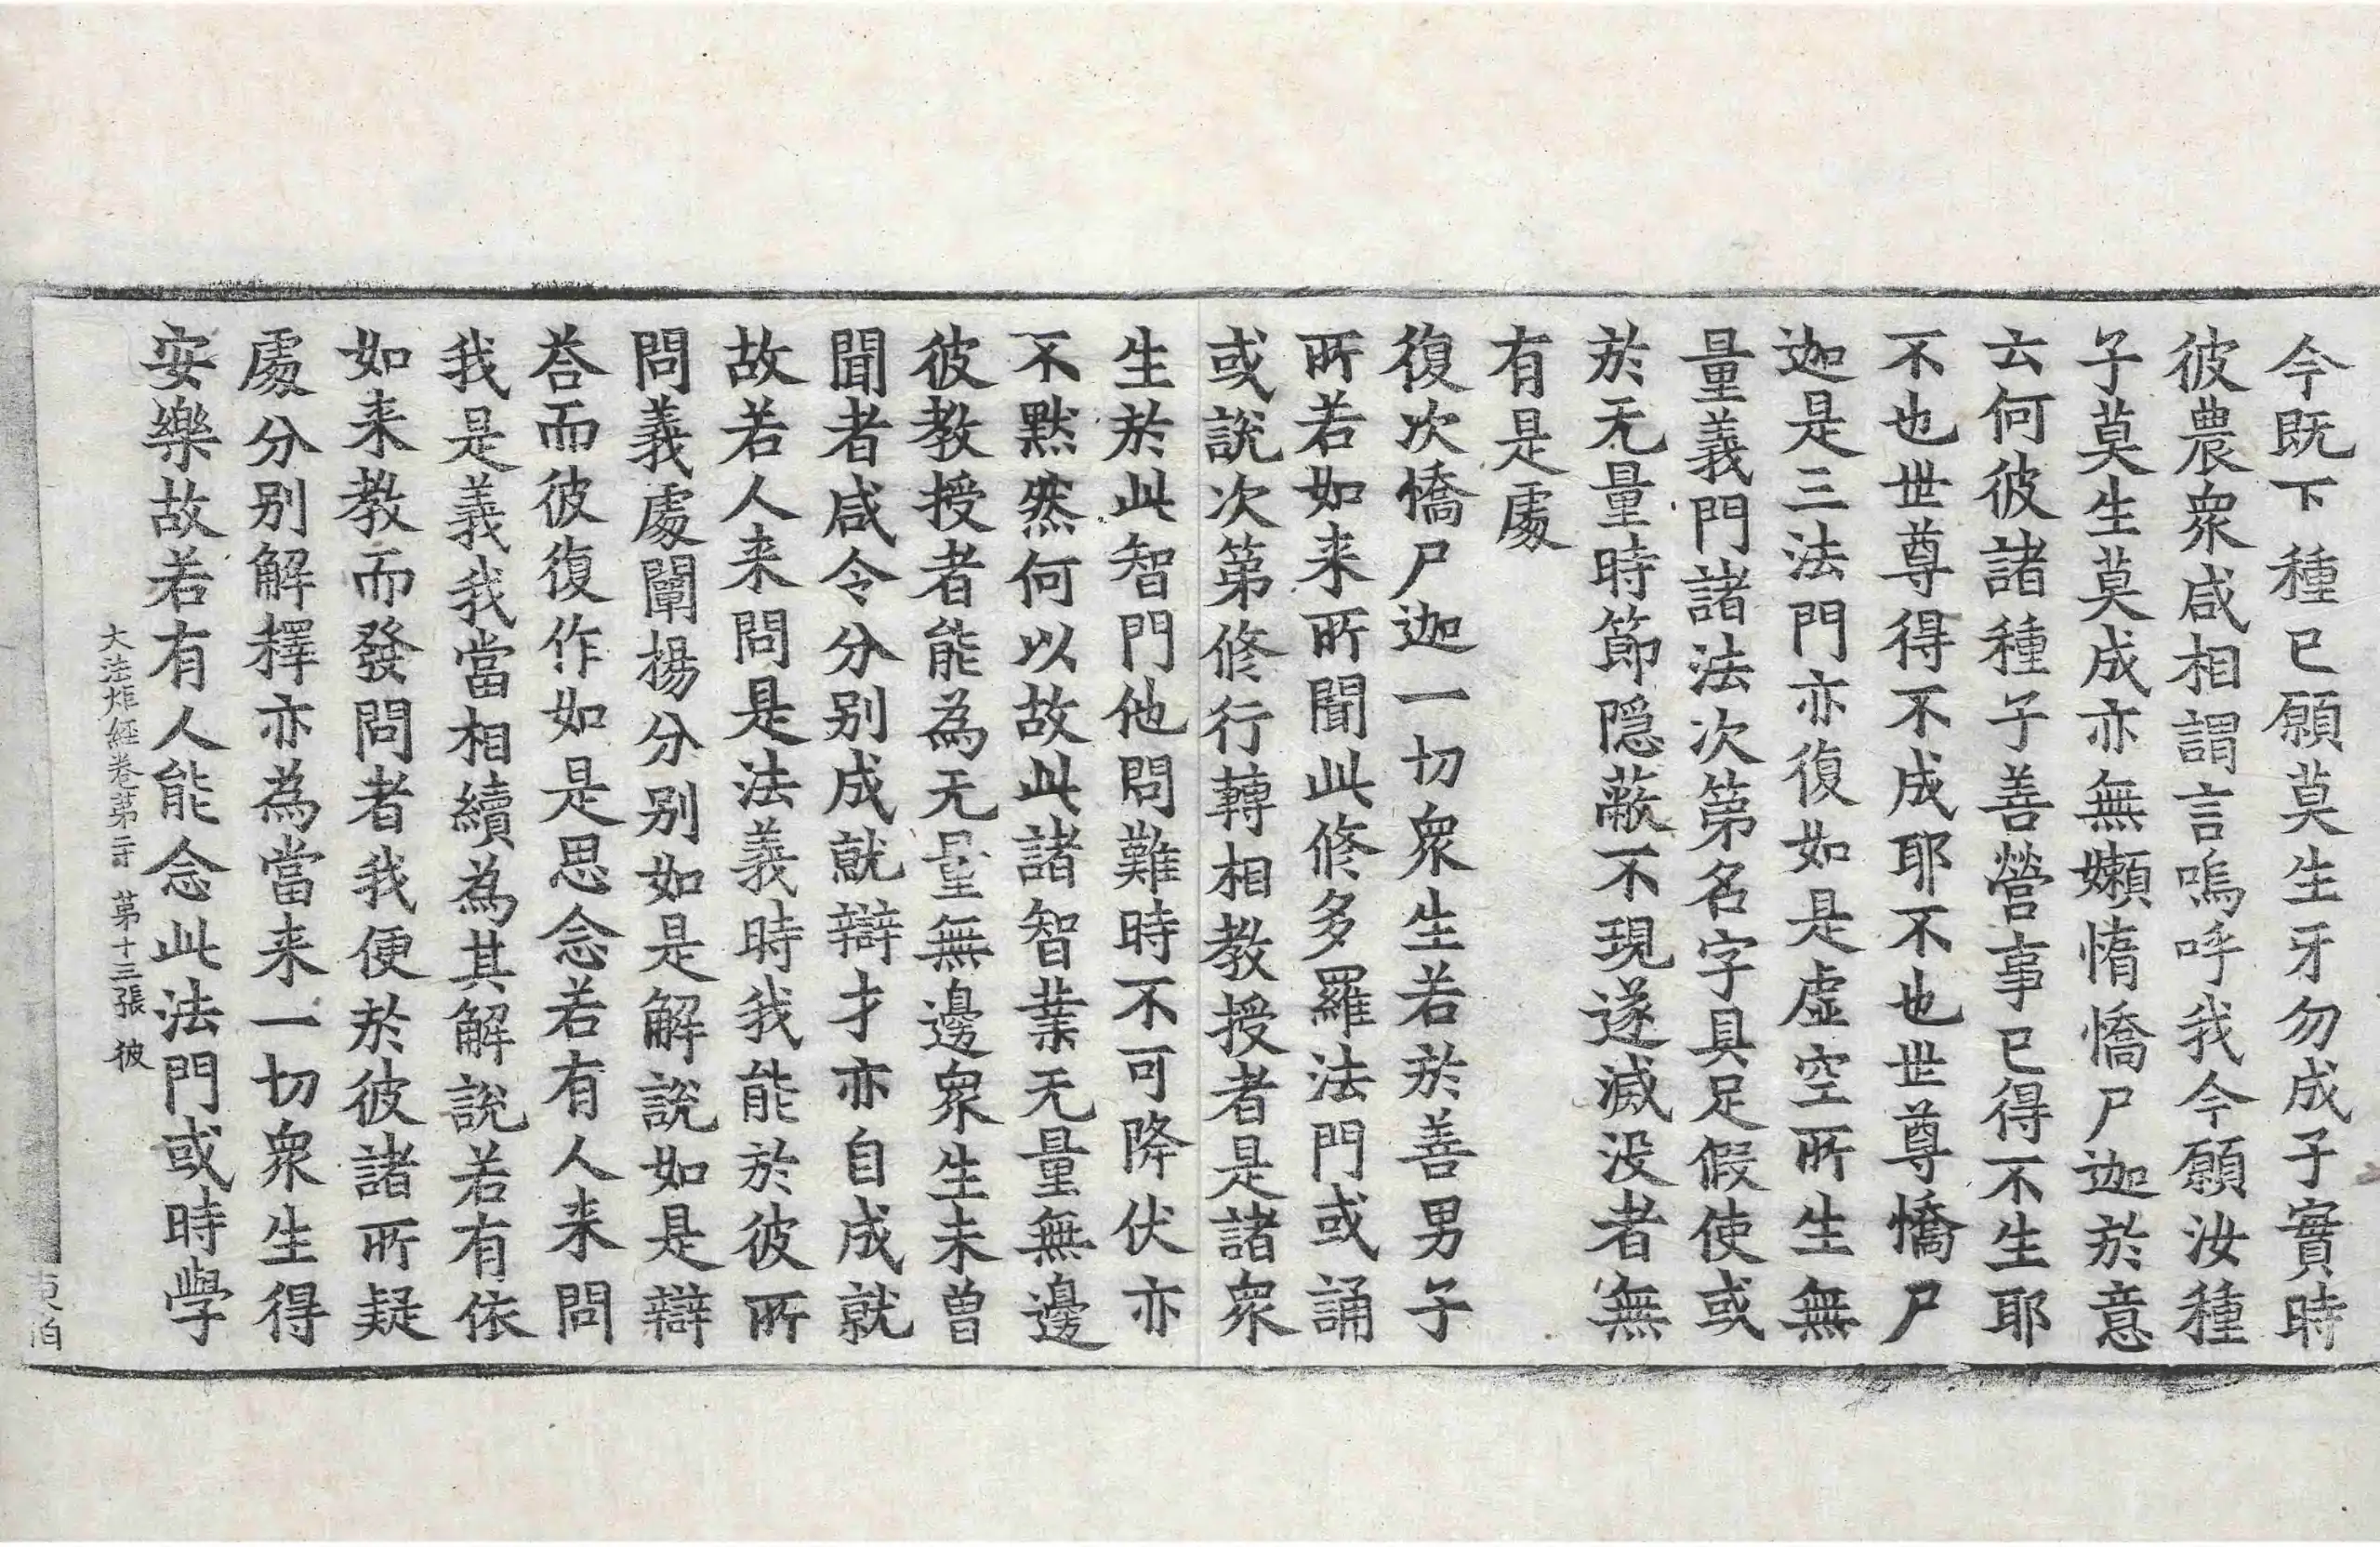 今既下種已願莫生牙勿成子實時
彼農衆咸相謂言嗚呼我今願汝種
子莫生莫成亦無嬾惰憍尸迦於意
云何彼諸種子善營事已得不生耶
不也世尊得不成耶不也世尊憍尸
迦是三法門亦復如是虛空所生無
量義門諸法次第名字具足假使或
於无量時節隐蔽不現遂滅没者無
有是處
復次憍尸迦一切衆生若於善男子
所若如来所聞此修多羅法門或誦
或說次第修行轉相教授者是諸衆
生於此智門他問難時不可降伏亦
不黙然何以故此諸智業无量無邊
彼教授者能為无量無邊衆生未曾
聞者咸令分别成就辯才亦自成就
故若人来問是法義時我能於彼所
問義處闡揚分别如是解說如是辯
荅而彼復作如是思念若有人来問
我是義我當相續為其解說若有依
如来教而發問者我便於彼諸所疑
處分别解釋亦為當来一切衆生得
安樂故若有人能念此法門或時學
大法炬經卷第二十 第十三張 彼